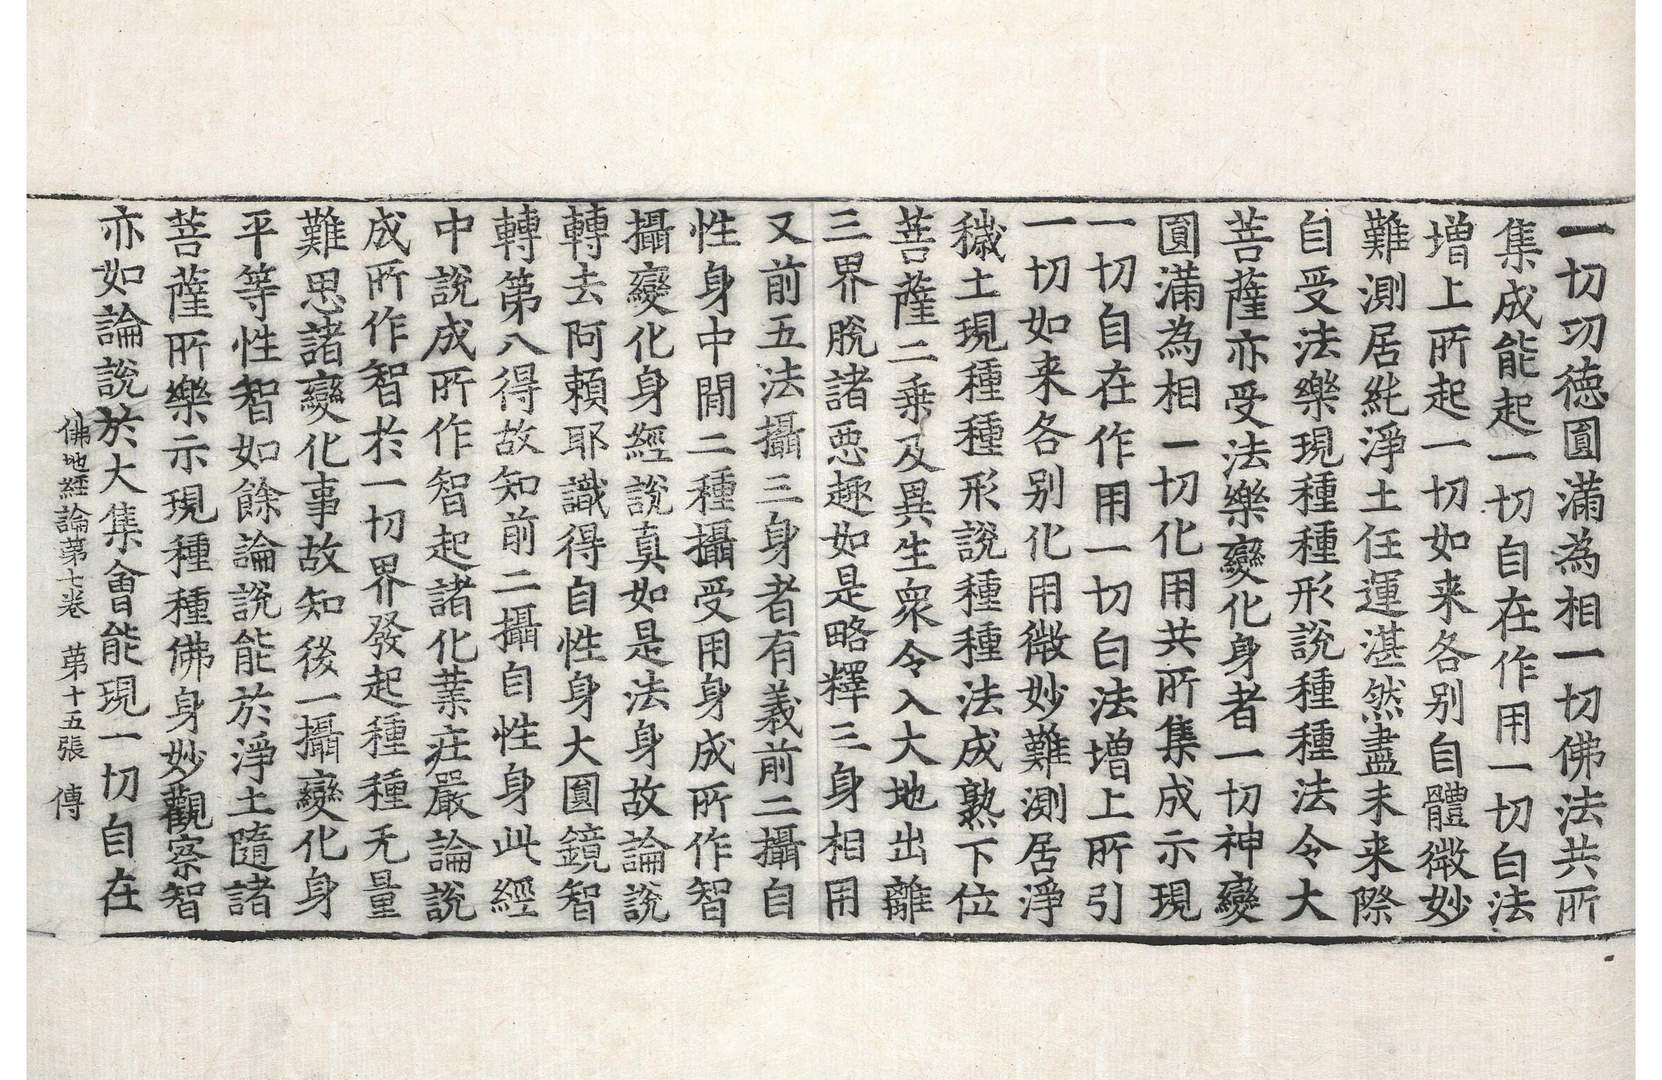 一切功德圎滿為相一切佛法共所
集成能起一切自在作用一切白法
增上所起一切如来各别自體微妙
難測居純淨土任運湛然盡未来際
自受法樂現種種形說種種法令大
菩薩亦受法樂變化身者一切神變
圎滿為相一切化用共所集成示現
一切自在作用一切白法增上所引
一切如来各别化用微妙難測居淨
穢土現種種形說種種法成熟下位
菩薩二乗及異生衆令入大地出離
三界脫諸惡趣如是略釋三身相用
又前五法攝三身者有義前二攝自
性身中間二種攝受用身成所作智
攝變化身經說真如是法身故論說
轉去阿頼耶識得自性身大圎鏡智
轉第八得故知前二攝自性身此經
中說成所作智起諸化業荘嚴論說
成所作智於一切界發起種種无量
難思諸變化事故知後一攝變化身
平等性智如餘論說能於淨土隨諸
菩薩所樂示現種種佛身妙觀察智
亦如論說於大集會能現一切自在
佛地經論苐七卷　苐十五張　傳